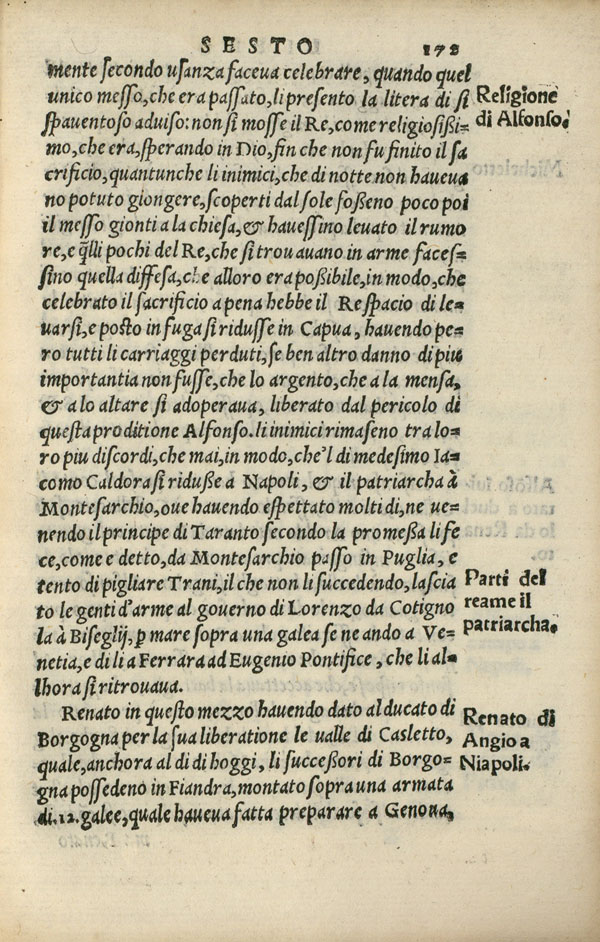 SESTO 172
mente secondo usanza faceva celebrare, quando quel
unico messo, che era passato, li presento la litera di si
spauentoso aduiso: non si mosse il Re, come religiosißi=
mo, che era, sperando in Dio, fin che non fu finito il sa
crificio, quantunche li inimici, che di notte non haueua
no potuto giongere, scoperti dal sole foßeno poco poi
il messo gionti a la chiesa, & hauessino leuato il rumo
re, e q̃lli pochi del Re, che si trouauano in arme faces=
sino quella diffesa, che alloro era poßibile, in modo, che
celebrato il sacrificio a pena hebbe il Re spacio di le=
uarsi, e posto in fuga si ridusse in Capua, hauendo pe=
ro tutti li carriaggi perduti, se ben altro danno di piu
importantia non fusse, che lo argento, che a la mensa,
& a lo altare si adoperaua, liberato dal pericolo di
questa proditione Alfonso. li inimici rimaseno tra lo=
ro piu discordi, che mai, in modo, che'l di medesimo Ia=
como Caldora si riduße a Napoli, & il patriarcha à
Montesarchio, oue hauendo espettato molti di, ne ue=
nendo il principe di Taranto secondo la promeßa li fe
ce, come e detto, da Montesarchio passo in Puglia, e
tento di pigliare Trani, il che non li succedendo, lascia
to le genti d'arme al gouerno di Lorenzo da Cotigno
la à Biseglij, ꝑ mare sopra una galea se ne ando a Ve=
netia, e di li a Ferrara ad Eugenio Pontifice, che li al=
lhora si ritrouaua.
Renato in questo mezzo hauendo dato al ducato di
Borgogna per la sua liberatione le ualle di Casletto,
quale, anchora al di di hoggi, li successori di Borgo=
gna possedeno in Fiandra, montato sopra una armata
di .12. galee, quale haueua fatta preparare a Genoua,
Religione
di Alfonso.
Parti del
reame il
patriarcha.
Renato di
Angio a
Niapoli.